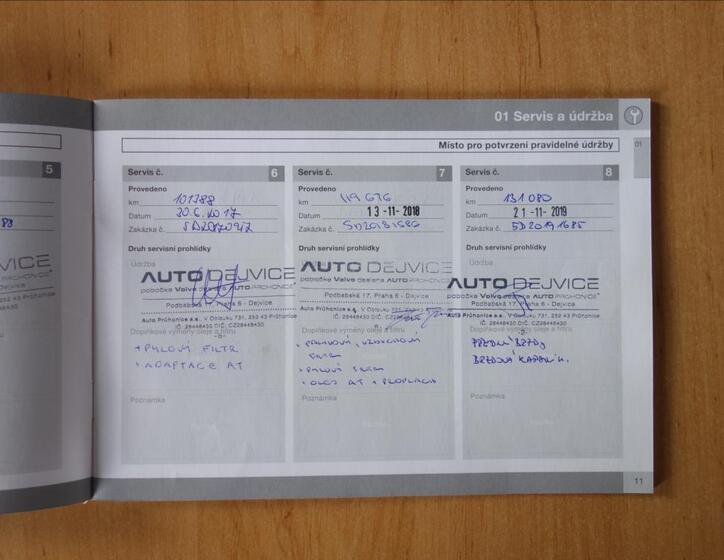 5
01 Servis a údržba
01
Místo pro potvrzení pravidelné údržby
Servis č. 6
Provedeno
km 101388
Datum 20.6.2017
Zakázka č.
Druh servisní prohlídky
Údržba
AUTO DEJVICE
pobočka Volvo dealera AUTO PRŮHONICE
Podbabská 17, Praha 6 - Dejvice
Auto Průhonice a.s., V Oblouku 731, 252 43 Průhonice
IČ: 26448430 DIČ: CZ26448430
Doplňkové výměny oleje a filtrů
+ PYLOVÝ FILTR
+ ADAPTACE AT
Poznámka
Servis č. 7
Provedeno
km 119 676
Datum 13 -11- 2018
Zakázka č. SD20181586
Druh servisní prohlídky
AUTO DEJVICE
pobočka Volvo dealera AUTO PRŮHONICE
Podbabská 17, Praha 6 - Dejvice
Auto Průhonice a.s., V Oblouku 731, 252 43 Průhonice
IČ: 26448430 DIČ: CZ26448430
FILTR
+ PYLOVÝ FILTR
+ OLEJ AT + PROPLACH
Poznámka
Servis č. 8
Provedeno
km 131 080
Datum 21 -11- 2019
Zakázka č. SD20191685
Druh servisní prohlídky
AUTO DEJVICE
pobočka Volvo dealera AUTO PRŮHONICE
Podbabská 17
Auto Průhonice a.s., V Oblouku 731, 252 43 Průhonice
IČ: 26448430 DIČ: CZ26448430
PŘEDNÍ BRZDY
BRZDOVÁ KAPALINA
Poznámka
11
VICE
Dejvice
252 43 Průhonice